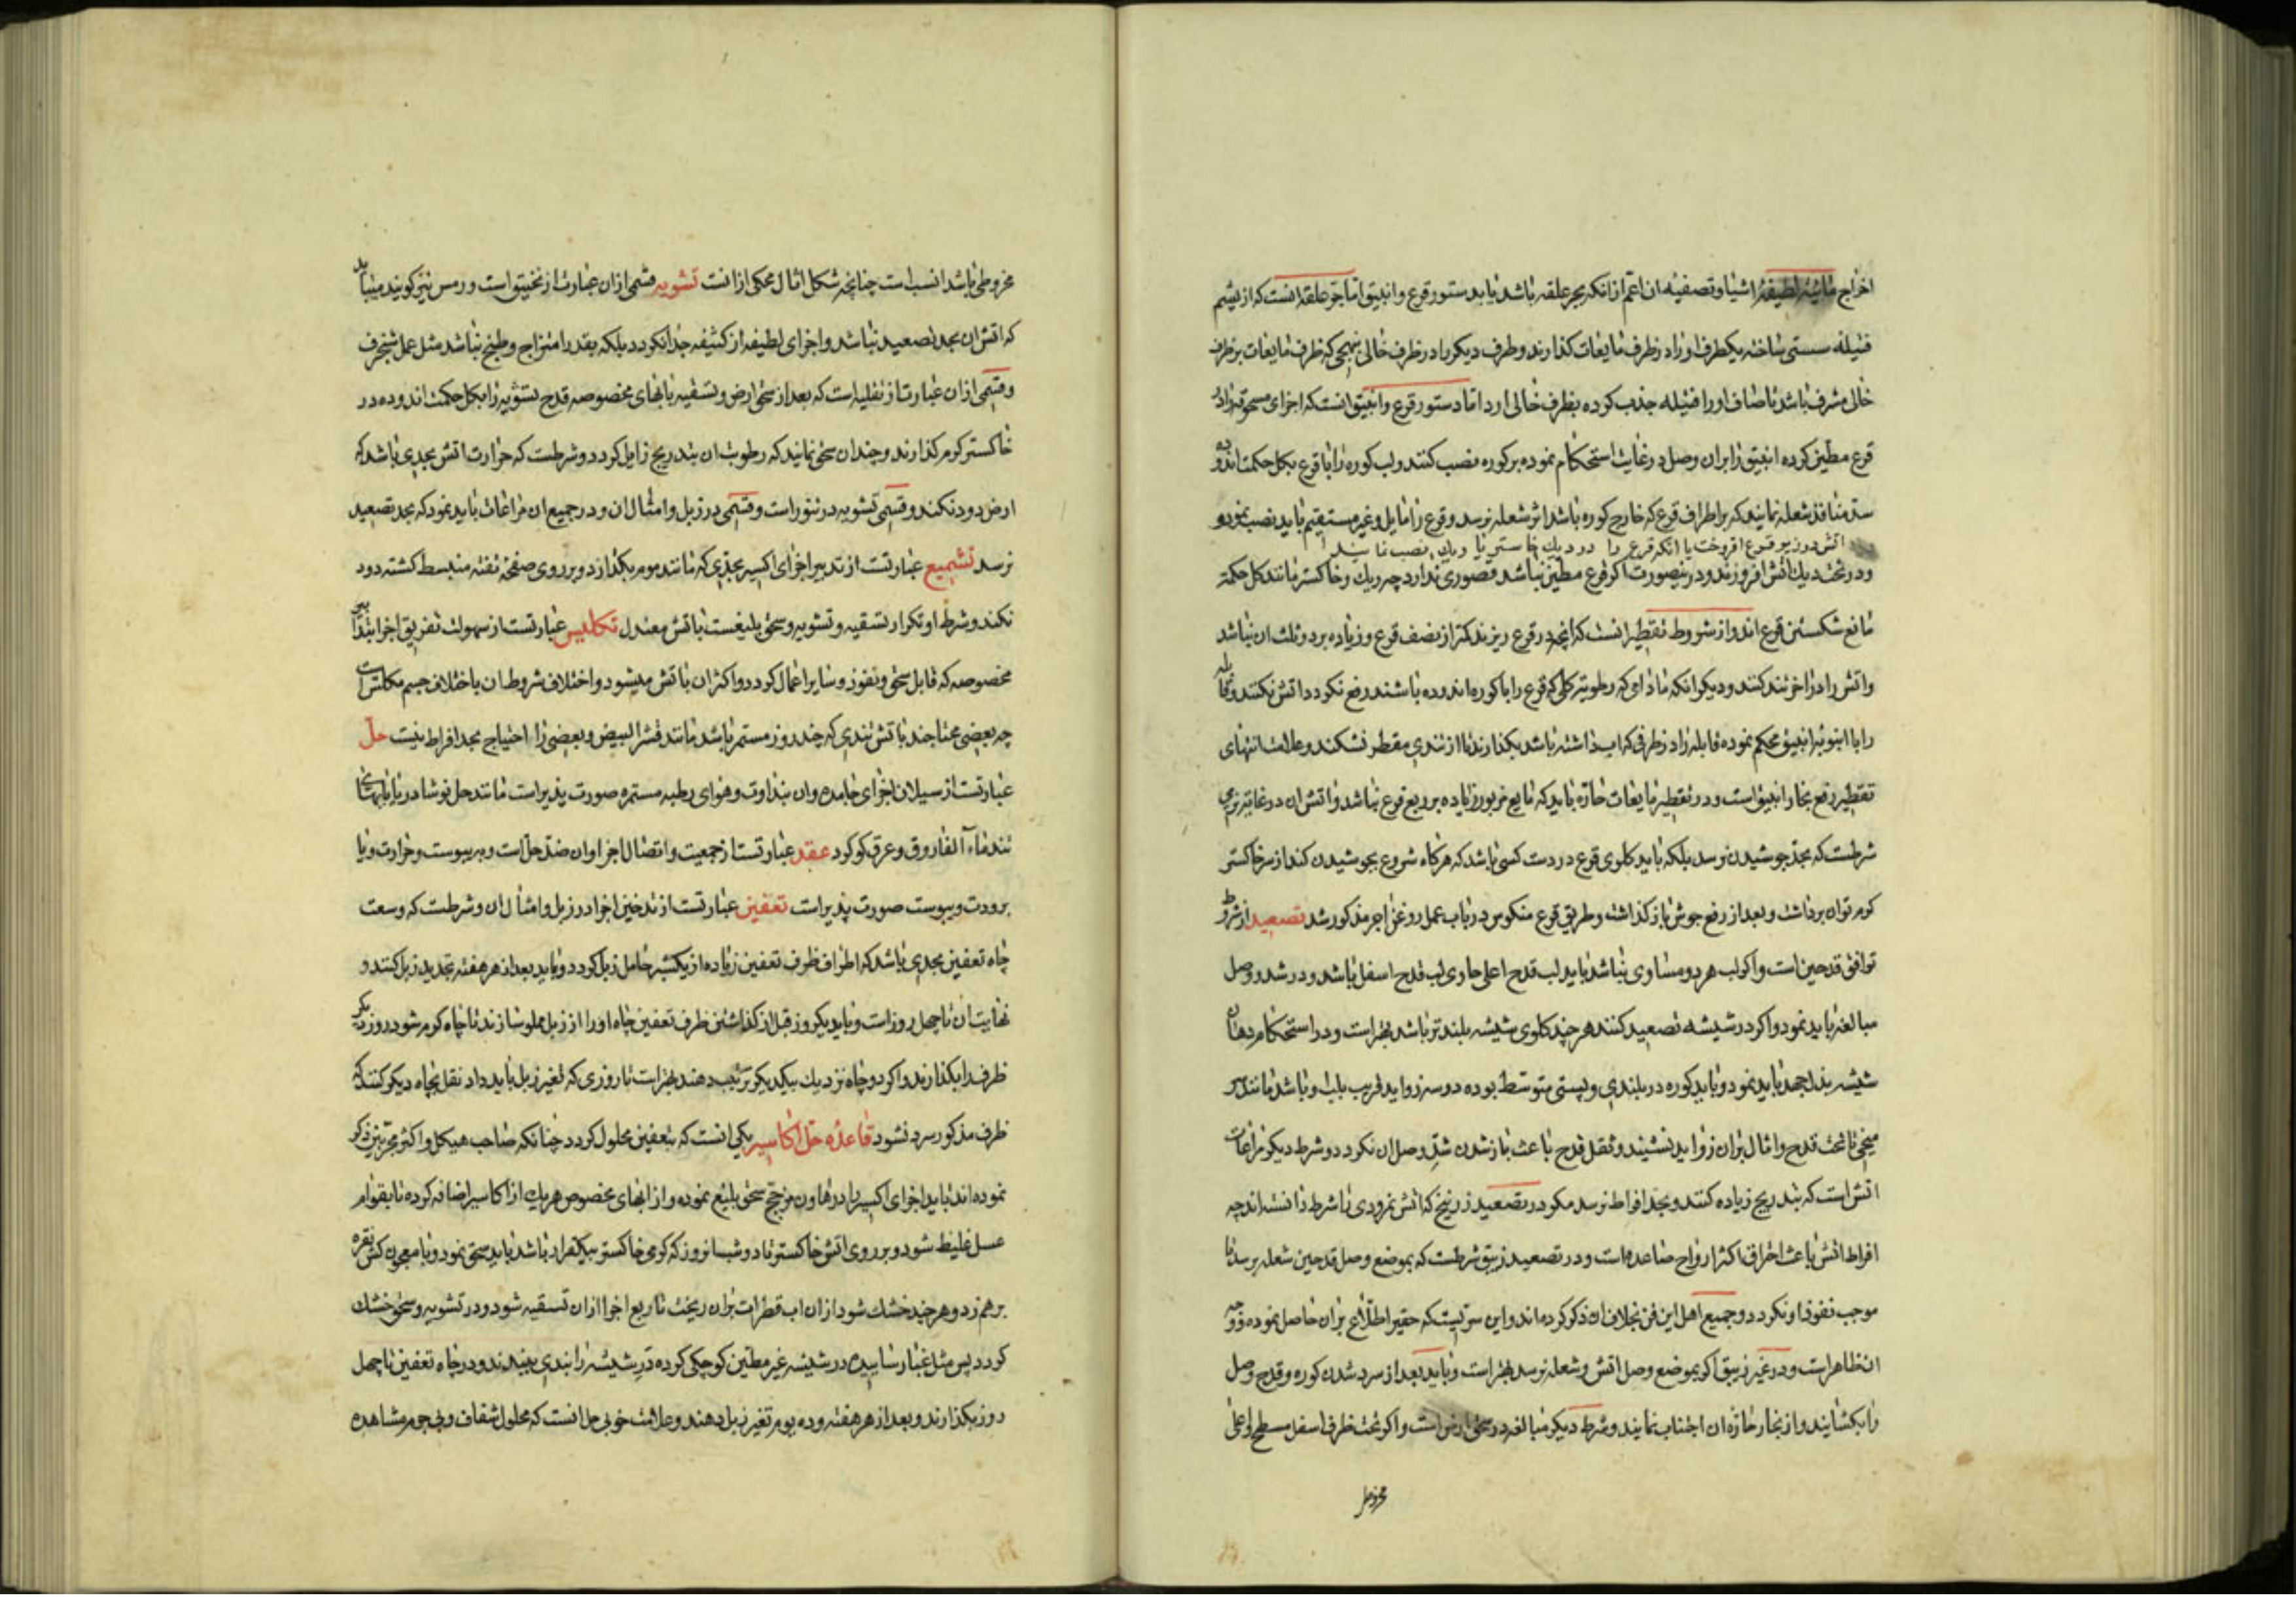 اخراج مائیه لطیفه اشیا و تصفیه ان اعم از انکه بجر علقه باشد یا بدستور قرع و انبیق اما جر علقه انست که از پشم
فتیله سستی ساخته یکطرف او را در ظرف مایعات کذارند و طرف دیکر را در ظرف خالی بنهجی که ظرف مایعات بر ظرف
خالی مشرف باشد تا صاف او را فتیله جذب کرده بظرف خالی ارد اما دستور قرع و انبیق انست که اجزای مسحوقه را در
قرع مطین کرده انبیق را بران وصل در غایت استحکام نموده بر کوره نصب کنند و لب کوره را با قرع بکل حکمت اندوده
سد منافذ شعله نمایند که بر اطراف قرع که خارج کوره باشد اثر شعله نرسد و قرع را مایل و غیر مستقیم باید نصب نمود و
اتش در زیر قرع افروخت یا انکه قرع را در دیک خاکستر یا ریک نصب نمایند
و در تحت دیک اتش افروزند و درینصورت اکر قرع مطین نباشد قصوری ندارد چه ریک و خاکستر مانند کل حکمة
مانع شکستن قرع اند و از شروط تقطیر انست که انچه در قرع ریزند کمتر از نصف قرع و زیاده بر دو ثلث ان نباشد
و اتش را در اخر تند کنند و دیکر انکه مادامی که رطوبت کلی که قرع را با کوره اندوده باشند رفع نکردد اتش نکنند و قابله
را با انبوبه انبیق محکم نموده قابله را در ظرفی که اب داشته باشد بکذارند تا از تندی مقطر نشکند و علامت انتهای
تقطیر رفع بخار انبیق است و در تقطیر مایعات حاره باید که مایع مزبور زیاده بر ربع قرع نباشد و اتش ان در غایت نرمی
شرطست که بحد جوشیدن نرسد بلکه باید کلوی قرع در دست کسی باشد که هرکاه شروع بجوشیدن کند از سر خاکستر
کرم توان برداشت و بعد از رفع جوش باز کذاشت و طریق قرع منکوس در باب عمل روغن اجر مذکور شد تصعید از شروط
توافق قدحین است و اکر لب هر دو مساوی نباشد باید لب قدح اعلی حاوی لب قدح اسفل باشد و در شد و وصل
مبالغه باید نمود و اکر در شیشه تصعید کنند هر چند کلوی شیشه بلندتر باشد بهتر است و در استحکام دهان
شیشه بذل جهد باید نمود و باید کوره در بلندی و پستی متوسط بوده دو سه زواید قریب بلب او باشد مانند سر
میخی تا تحت قدح و اثال بران زواید نشیند و ثقل قدح باعث باز شدن شد و وصل ان نکردد و شرط دیکر مراعات
اتش است که بتدریج زیاده کنند و بحد افراط نرسد مکر در تصعید زرنیخ که اتش نمرودی را شرط دانسته اند چه
افراط اتش باعث احراق اکثر ارواح صاعده است و در تصعید زیبق شرطست که بموضع وصل قدحین شعله برسد تا
موجب نفوذ او نکردد و جمیع اهل این فن بخلاف ان ذکر کرده اند و این سریست که حقیر اطلاع بران حاصل نموده و وجه
ان ظاهر است و در غیر زیبق اکر بموضع وصل اتش و شعله نرسد بهتر است و باید بعد از سرد شدن کوره و قدح وصل
را بکشایند و از بخار حاره ان اجتناب نمایند و شرط دیکر مبالغه در سحق ارض است و اکر تحت ظرف اسفل مسطح و اعلی
مخروطی
مخروطی باشد انسب است چنانچه شکل اثال محکی از انست تشویه قسمی ازان عبارت از تخنیق است و رمس نیز کویند میباید
که اتش ان بحد تصعید نباشد و اجزای لطیفه از کثیفه جدا نکردد بلکه بقدر امتزاج و طبخ باشد مثل عمل شنجرف
و قسمی ازان عبارت از تقلیه است که بعد از سحق ارض و تسقیه بابهای مخصوصه قدح تشویه را بکل حکمت اندوده در
خاکستر کرم کذارند و چندان سحق نمایند که رطوبت ان بتدریج زایل کردد و شرطست که حرارت اتش بحدی باشد که
ارض دود نکند و قسمی تشویه در تنور است و قسمی در زبل و امثال ان و در جمیع ان مراعات باید نمود که بحد تصعید
نرسد تشمیع عبارتست از تدبیر اجزای اکسیر بحدی که مانند موم بکدازد و بر روی صفحه تفته منبسط کشته دود
نکند و شرط او تکرار تسقیه و تشویه و سحق بلیغست باتش معتدل تکلیس عبارتست از سهولت تفریق اجزا بتدابیر
مخصوصه که قابل سحق و نفوذ و سایر اعمال کردد و اکثر ان باتش میشود و اختلاف شروط ان باختلاف جسم مکلس است
چه بعضی محتاجند باتش تندی که چند روز مستمر باشد مانند قشر البیض و بعضی را احتیاج بحد افراط نیست حل
عبارتست از سیلان اجزای جامده و ان بنداوت و هوای رطبه مستمره صورت پذیر است مانند حل نوشادر یا بابهای
تند ماء الفاروق و عرق کوکرد عقد عبارتست از جمعیت و اتصال اجزا و ان ضد حل است و به یبوست و حرارت و یا
برودت و یبوست صورت پذیر است تعفین عبارتست از تدخین اجزا در زبل و امثال ان و شرطست که وسعت
چاه تعفین بحدی باشد که اطراف ظرف تعفین زیاده از یکشبر حامل زبل کردد و باید بعد از هر هفته تجدید زبل کنند و
نهایت ان تا چهل روز است و باید یکروز قبل از کذاشتن ظرف تعفین چاه او را از زبل مملو سازند تا چاه کرم شود روز دیکر
ظرف را بکذارند و اکر دو چاه نزدیک بیکدیکر ترتیب دهند بهتر است تا روزی که تغیر زبل باید داد نقل بچاه دیکر کنند که
ظرف مذکور سرد نشود قاعده حل اکاسیر یکی انست که بتعفین محلول کردد چنانکه صاحب هیکل و اکثر مجربین ذکر
نموده اند باید اجزای اکسیر را در هاون مزجج سحق بلیغ نموده و از ابهای مخصوص هریک از اکاسیر اضافه کرده تا بقوام
عسل غلیظ شود و بر روی اتش خاکستر تا دو شبانروز که کرمی خاکستر بیکقرار باشد باید سحق نمود و با معجون کش نقره
برهم زد و هر چند خشک شود ازان اب قطرات بران ریخت تا ربع اجزا ازان تسقیه شود و در تشویه و سحق خشک
کردد پس مثل غبار ساییده در شیشه غیر مطین کوچکی کرده در شیشه را بندی ببندند و در چاه تعفین تا چهل
روز بکذارند و بعد از هر هفته و ده یوم تغیر زبل دهند و علامت خوبی حل انست که محلول شفاف و بی جرم مشاهده